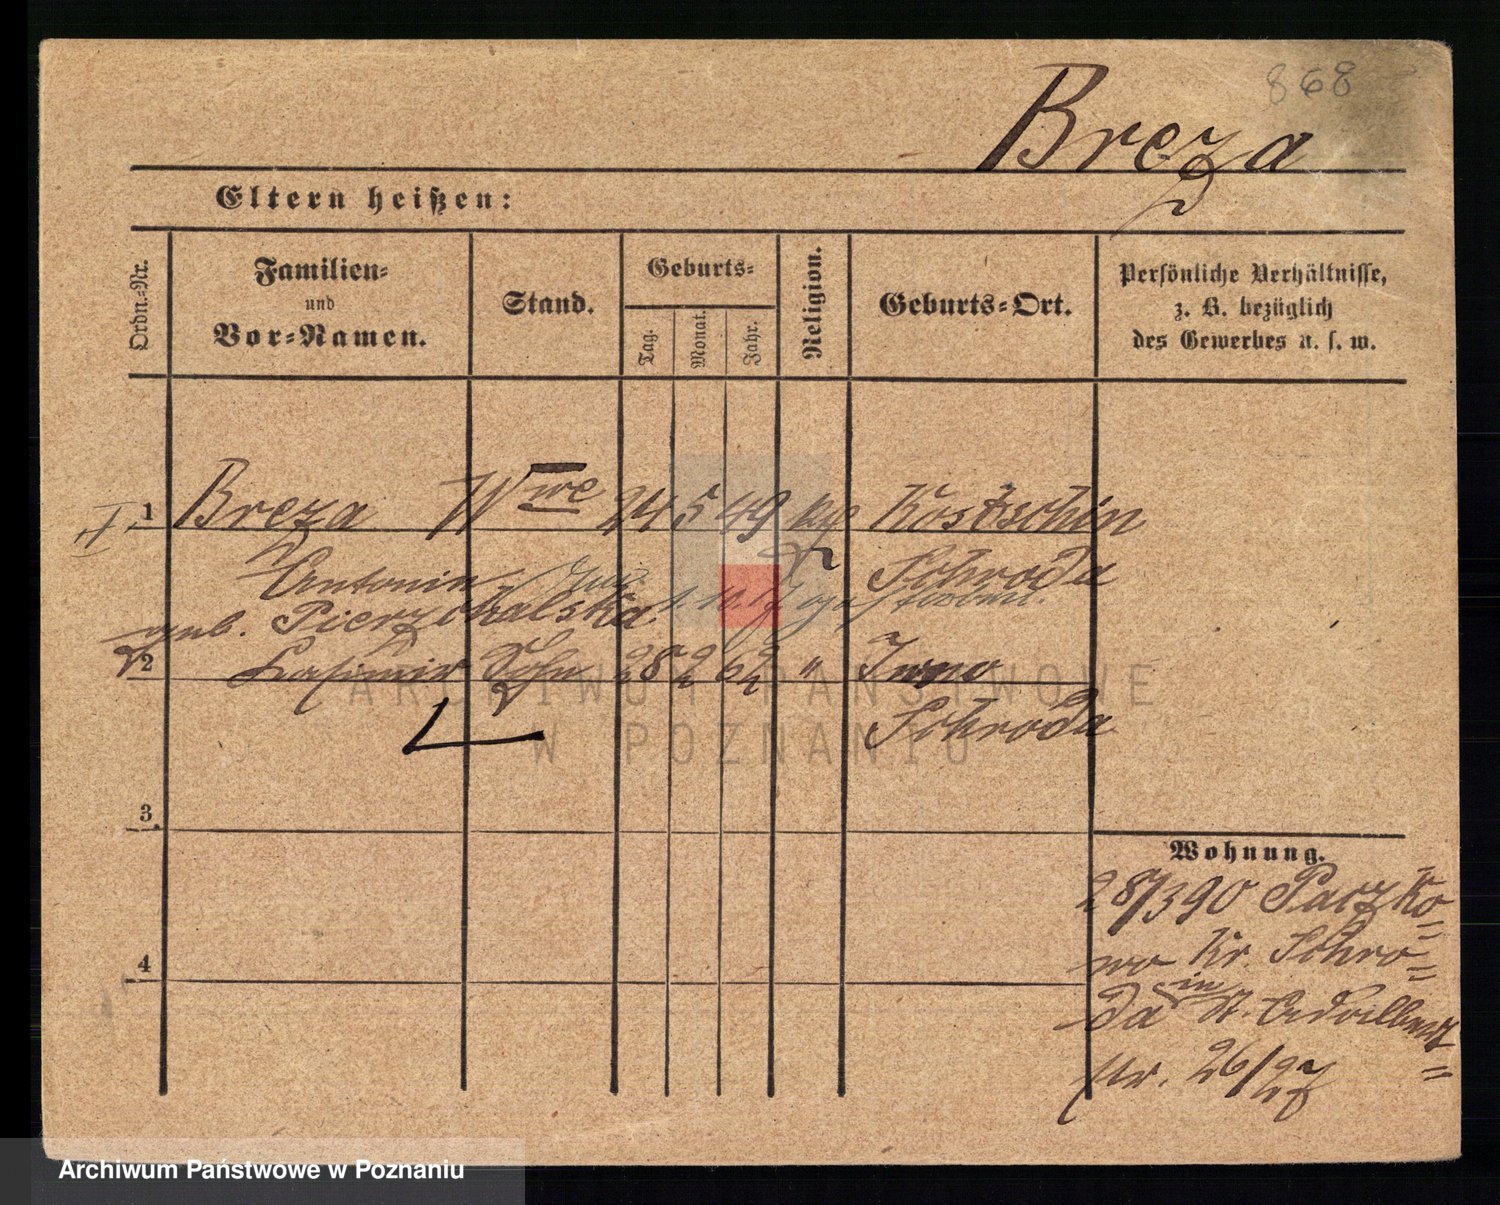 868
Breza
Eltern heißen:
Ordn.-Nr.
Familien-
und
Vor-Namen.
Stand.
Geburts-
Tag.
Monat.
Jahr.
Religion.
Geburts-Ort.
Persönliche Verhältnisse,
z. B. bezüglich
des Gewerbes u. s. w.
1 Breza Wwe 24 5 49 Kostschin
Antonin Schroda
geb. Pierzchalska
2 Kasimir Sohn 28 2 62 " Iwno
Schroda
3
4
Wohnung.
28/3 90 Paczko-
wo Kr. Schro-
da in St. Adalbert-
str. 26/27
ARCHIWUM PAŃSTWOWE
W POZNANIU
Archiwum Państwowe w Poznaniu